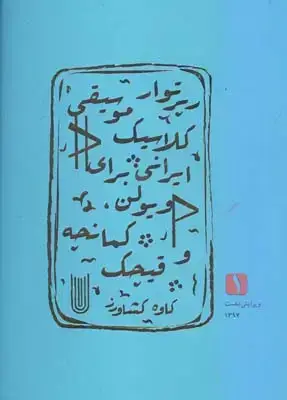 رپرتوار موسیقی
کلاسیک
ایرانی برای
ویولن،
کمانچه
و قیچک
کاوه کشاورز
ویرایش نخست
۱۳۹۷